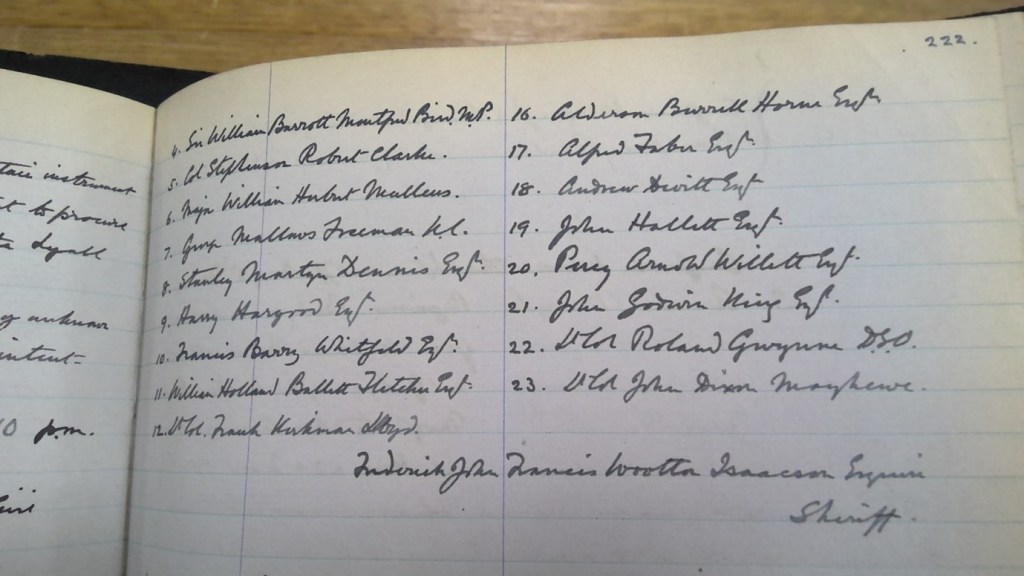 tain instrument
to procure
Lyall
unknown
intent-
10 p.m.
222.
4. Sir William Barrott Montford Bird. M.P.
5. Col Stephenson Robert Clarke.
6. Major William Herbert Mullens.
7. George Mallows Freeman K.C.
8. Stanley Martyn Dennis Esqr.
9. Harry Hargood Esqr.
10. Francis Barry Whitfeld Esqr.
11. William Holland Ballett Fletcher Esqr
12. Lt Col. Frank Kirkman Lloyd.
16. Alderson Burrell Horne Esqr
17. Alfred Faber Esqr.
18. Andrew Devitt Esqr
19. John Hallett Esqr.
20. Percy Arnold Willett Esqr.
21. John Godwin King Esqr.
22. Lt Col Roland Gwynne D.S.O.
23. Lt Col John Dixon Mayhewe.
Frederick John Francis Wootton Isaacson Esquire
Sheriff.